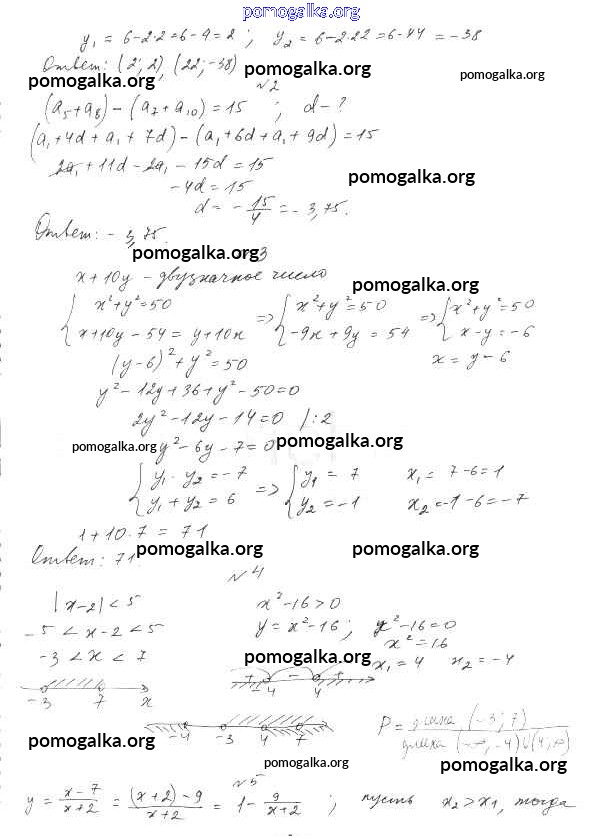 pomogalka.org
y₁ = 6-2·2=6-4=2 ; y₂ = 6-2·22=6-44=-38
Ответ: (2; 2), (22; -38) pomogalka.org pomogalka.org
pomogalka.org №2
(a₅+a₈) - (a₇+a₁₀) = 15 ; d - ?
(a₁+4d+a₁+7d) - (a₁+6d+a₁+9d) = 15
2a₁+11d-2a₁-15d=15
pomogalka.org
-4d=15
d = -15/4 = -3,75.
Ответ: -3,75.
pomogalka.org 3
x+10y - двузначное число
pomogalka.org
{ x²+y²=50 => { x²+y²=50 => { x²+y²=50
x+10y-54=y+10x -9x+9y=54 x-y=-6
(y-6)²+y²=50 x=y-6
y²-12y+36+y²-50=0
2y²-12y-14=0 /:2
pomogalka.org y²-6y-7=0 pomogalka.org
{ y₁·y₂=-7 => { y₁=7 x₁=7-6=1
y₁+y₂=6 y₂=-1 x₂=-1-6=-7
1+10·7=71
Ответ: 71. pomogalka.org pomogalka.org
№4
|x-2|<5 x²-16>0
-5<x-2<5 y=x²-16; x²-16=0
x²=16
-3<x<7 pomogalka.org x₁=4 x₂=-4
+ - +
-4 4
-3 7 x
-4 -3 4 7 P = длина (-3; 7) / длина (-∞; -4)∪(4; ∞)
pomogalka.org
pomogalka.org pomogalka.org
№5
y = (x-7)/(x+2) = ((x+2)-9)/(x+2) = 1 - 9/(x+2) ; пусть x₂>x₁, тогда